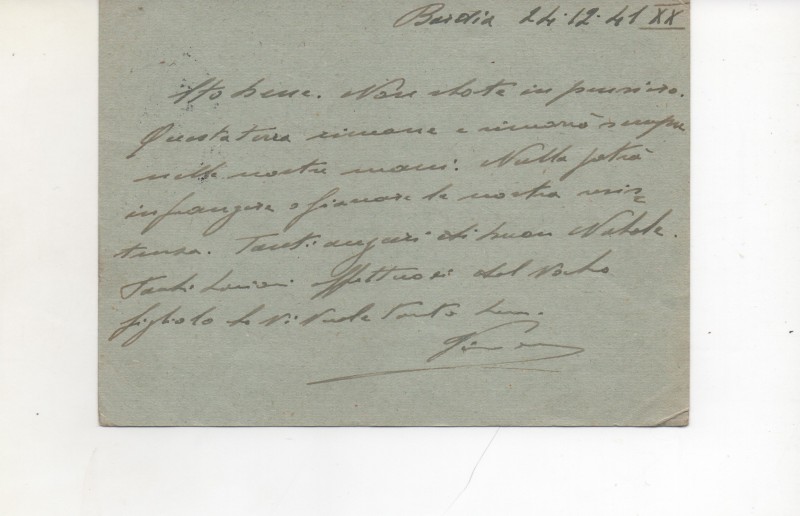 Bardia 24.12.41 XX
Sto bene. Non state in pensiero.
Questa terra rimane e rimarrà sempre
nelle nostre mani. Nulla potrà
infrangere o fiaccare la nostra resis=
tenza. Tanti auguri di buon Natale.
Tanti bacioni affettuosi dal Vostro
figliolo che Vi vuole tanto bene.